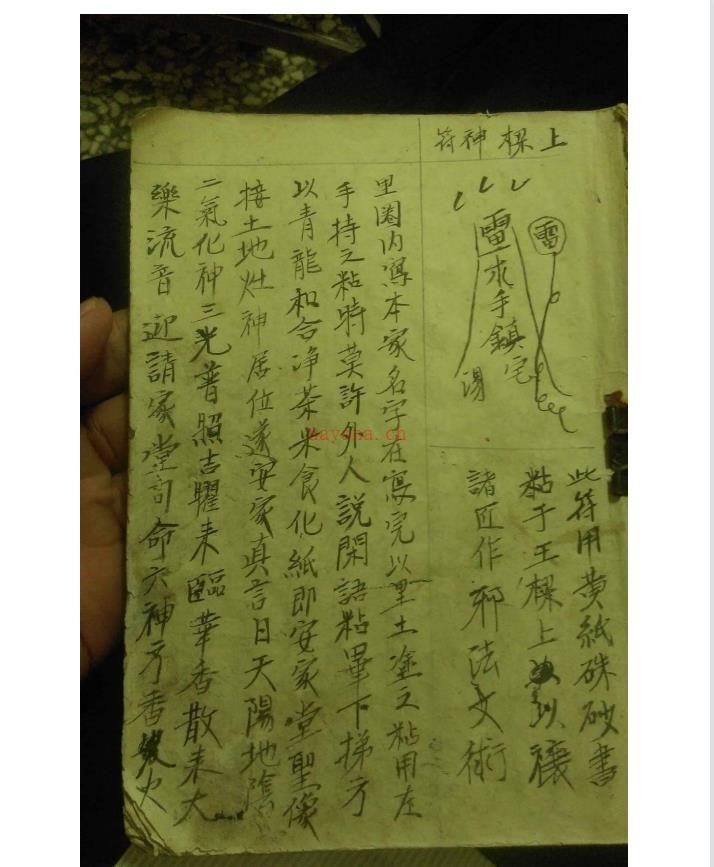 上樑神符
雷
雷
求手鎮宅
湯
此符用黄紙硃砂書
粘于王樑上以禳
諸匠作邪法文術
里圈内寫本家名字在寫完以墨土塗之粘用左
手持之粘時莫許外人說閑語粘畢下梯方
以青龍和合净茶米食化紙即安家堂聖像
接土地灶神居位遂安家真言日天陽地陰
二氣化神三光普照吉耀来臨華香散来大
樂流音迎請家堂司命六神牙香火
nayona.cn